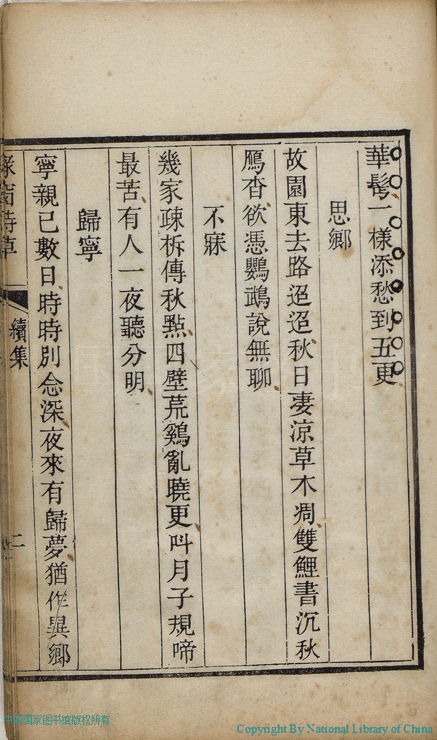 華髩一樣添愁到五更
思鄉
故園東去路迢迢秋日凄涼草木凋雙鯉書沉秋
鴈杳欲憑鸚鵡說無聊
不寐
幾家疎柝傳秋點四壁荒鷄亂曉更呌月子規啼
最苦有人一夜聽分明
歸寧
寧親已數日時時別念深夜來有歸夢猶作異鄉
詩草
續集
二
中國国家图书馆版权所有
Copyright By National Library of China